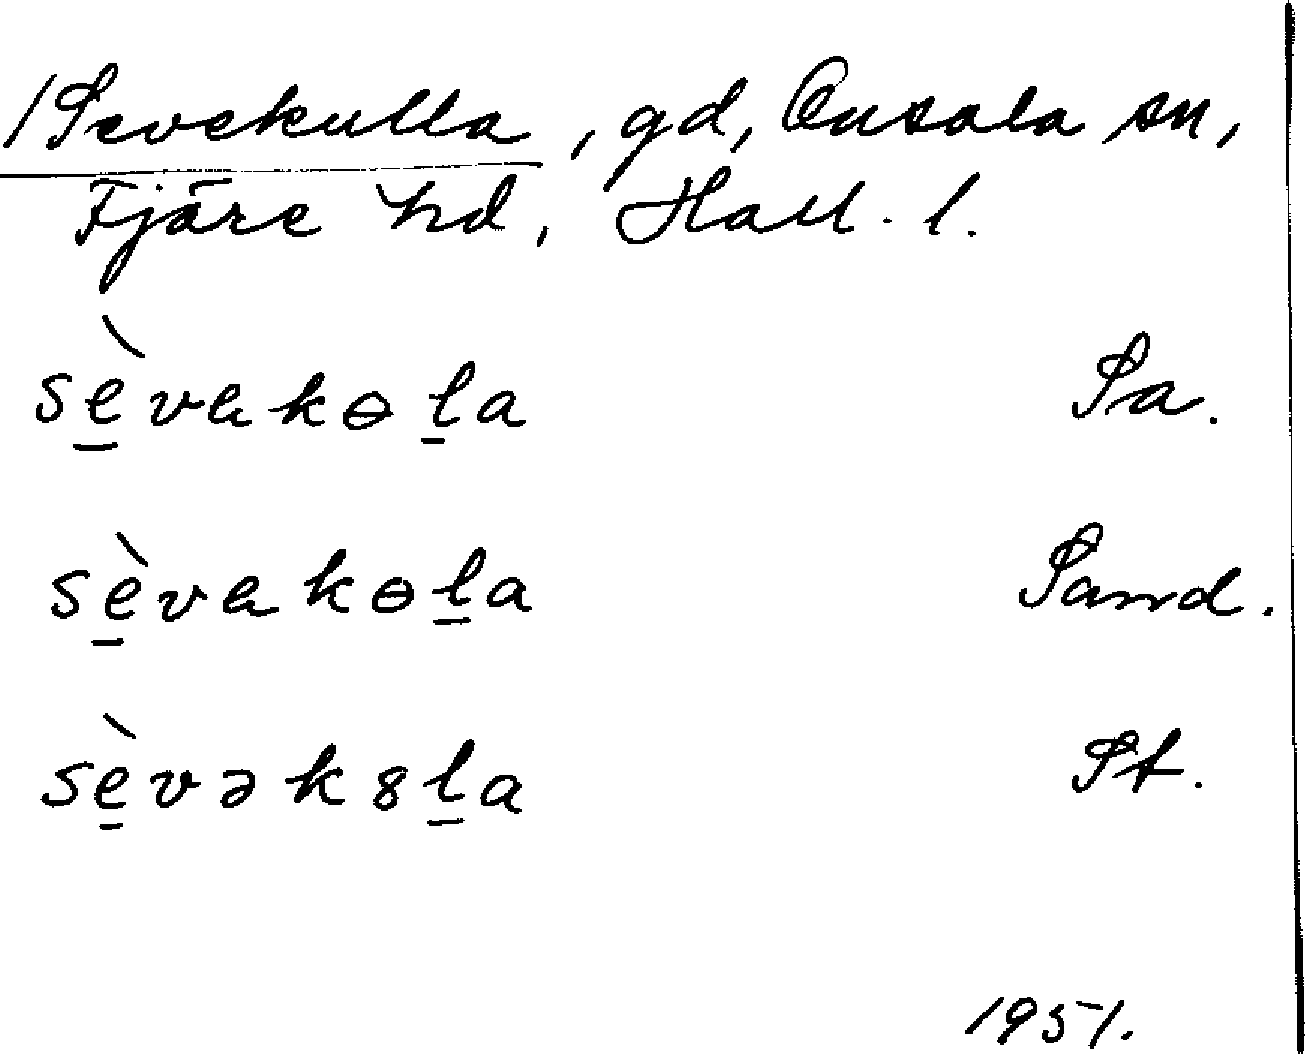 /Sevekulla, gd, Onsala sn,
Fjäre hd, Hall. l.
sè̱vakɵḻa Sa.
sè̱vakɵḻa Sand.
sè̱vəkȣḻa St.
1951.